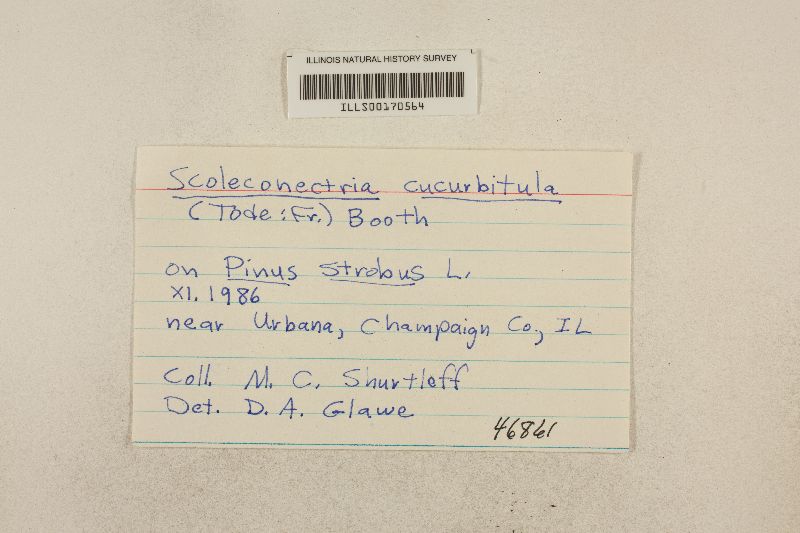 ILLINOIS NATURAL HISTORY SURVEY
ILLS00170564
Scoleconectria cucurbitula
(Tode:Fr.) Booth
on Pinus strobus L.
XI. 1986
near Urbana, Champaign Co., IL
Coll. M. C. Shurtleff
Det. D. A. Glawe
46861